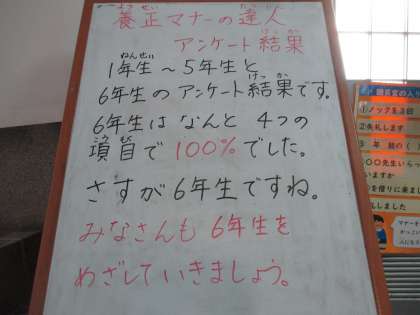 養正マナーの達人
アンケート結果
1年生～5年生と
6年生のアンケート結果です。
6年生はなんと4つの
項目で100%でした。
さすが6年生ですね。
みなさんも6年生を
めざしていきましょう。
職員室の入り
①ノックを3回
②失礼します